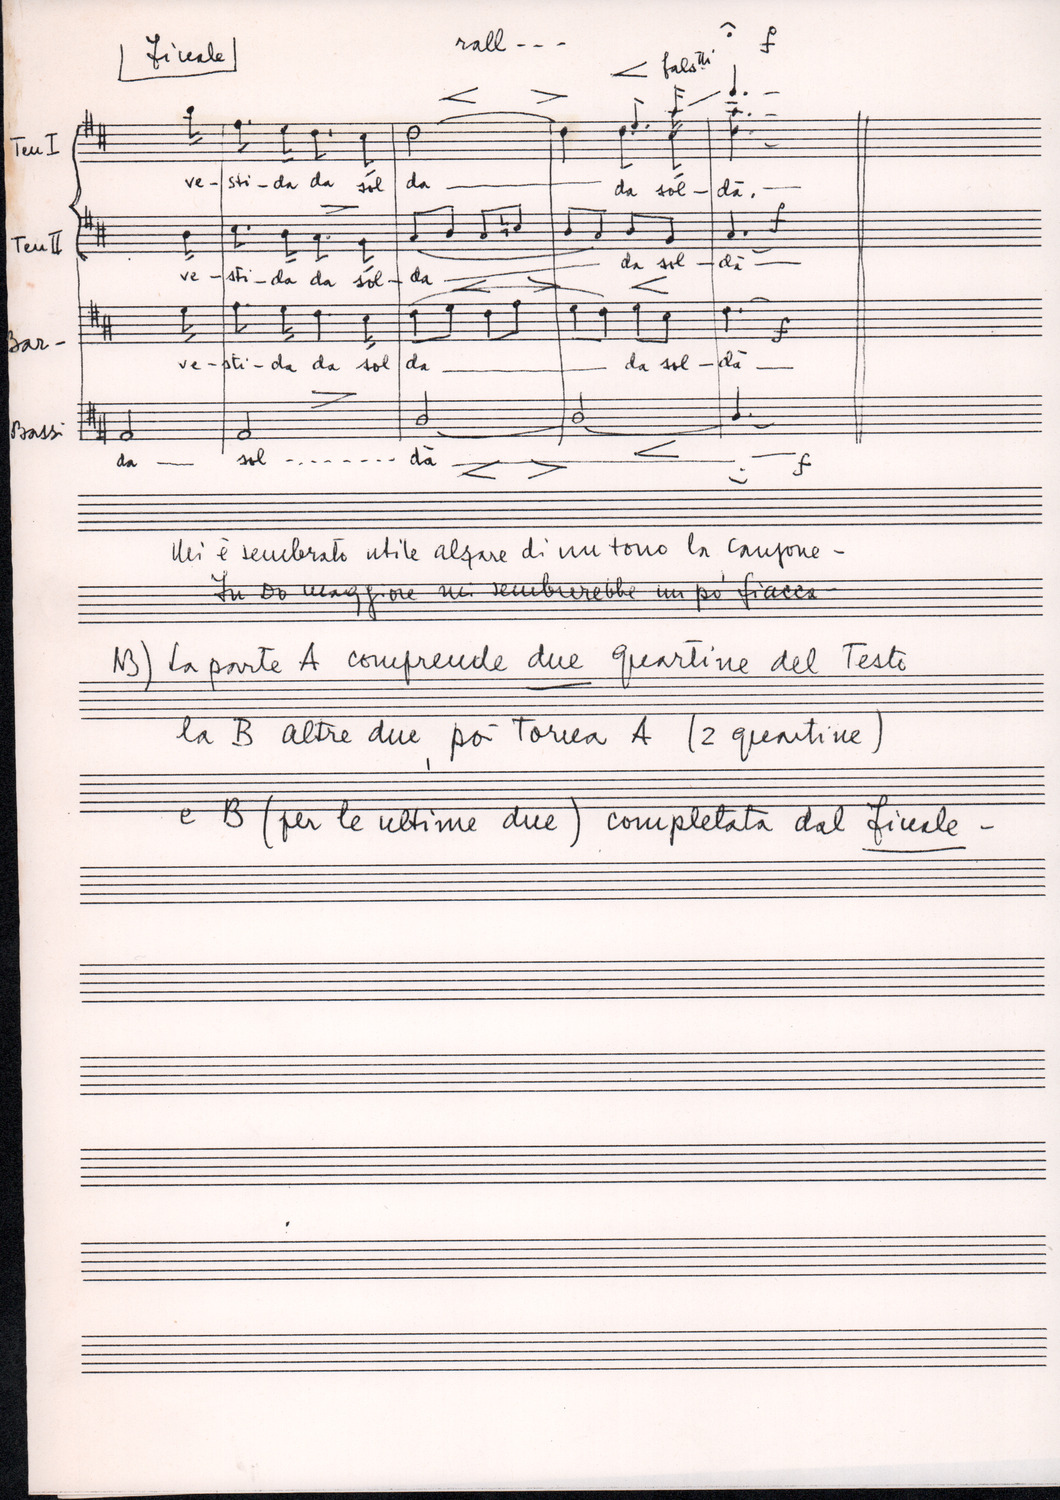 Finale
rall - - -
< falstti
f
Ten I
ve - sti - da da sol da da sol - dà.
Ten II
f
ve - sti - da da sol - da da sol - dà
Bar -
f
ve - sti - da da sol da da sol - dà
Bassi
da sol - - - - - - - - dà
f
Mi è sembrato utile alzare di un tono la canzone -
In Do maggiore mi sembrerebbe un pò fiacca
NB) La parte A comprende due quartine del Testo
la B altre due, pòi Torna A (2 quartine)
e B (per le ultime due) completata dal Finale -